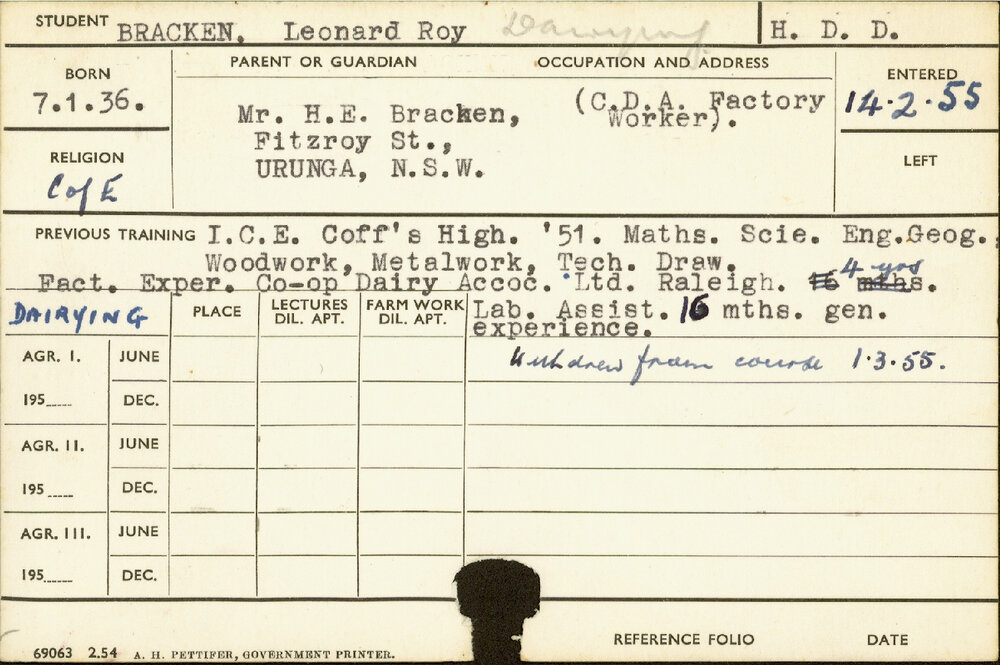 STUDENT BRACKEN, Leonard Roy Dairying H. D. D.
BORN PARENT OR GUARDIAN OCCUPATION AND ADDRESS ENTERED
7.1.36. Mr. H.E. Bracken, (C.D.A. Factory Worker). 14.2.55
Fitzroy St.,
RELIGION URUNGA, N.S.W. LEFT
C of E
PREVIOUS TRAINING I.C.E. Coff's High. '51. Maths. Scie. Eng.Geog.,
Woodwork, Metalwork, Tech. Draw.
Fact. Exper. Co-op Dairy Accoc. Ltd. Raleigh. 16 mths. 4 yrs
DAIRYING PLACE LECTURES DIL. APT. FARM WORK DIL. APT. Lab. Assist. 16 mths. gen.
experience.
AGR. I. JUNE Withdrew from course 1.3.55.
195 DEC.
AGR. II. JUNE
195 DEC.
AGR. III. JUNE
195 DEC.
REFERENCE FOLIO DATE
69063 2.54 A. H. PETTIFER, GOVERNMENT PRINTER.